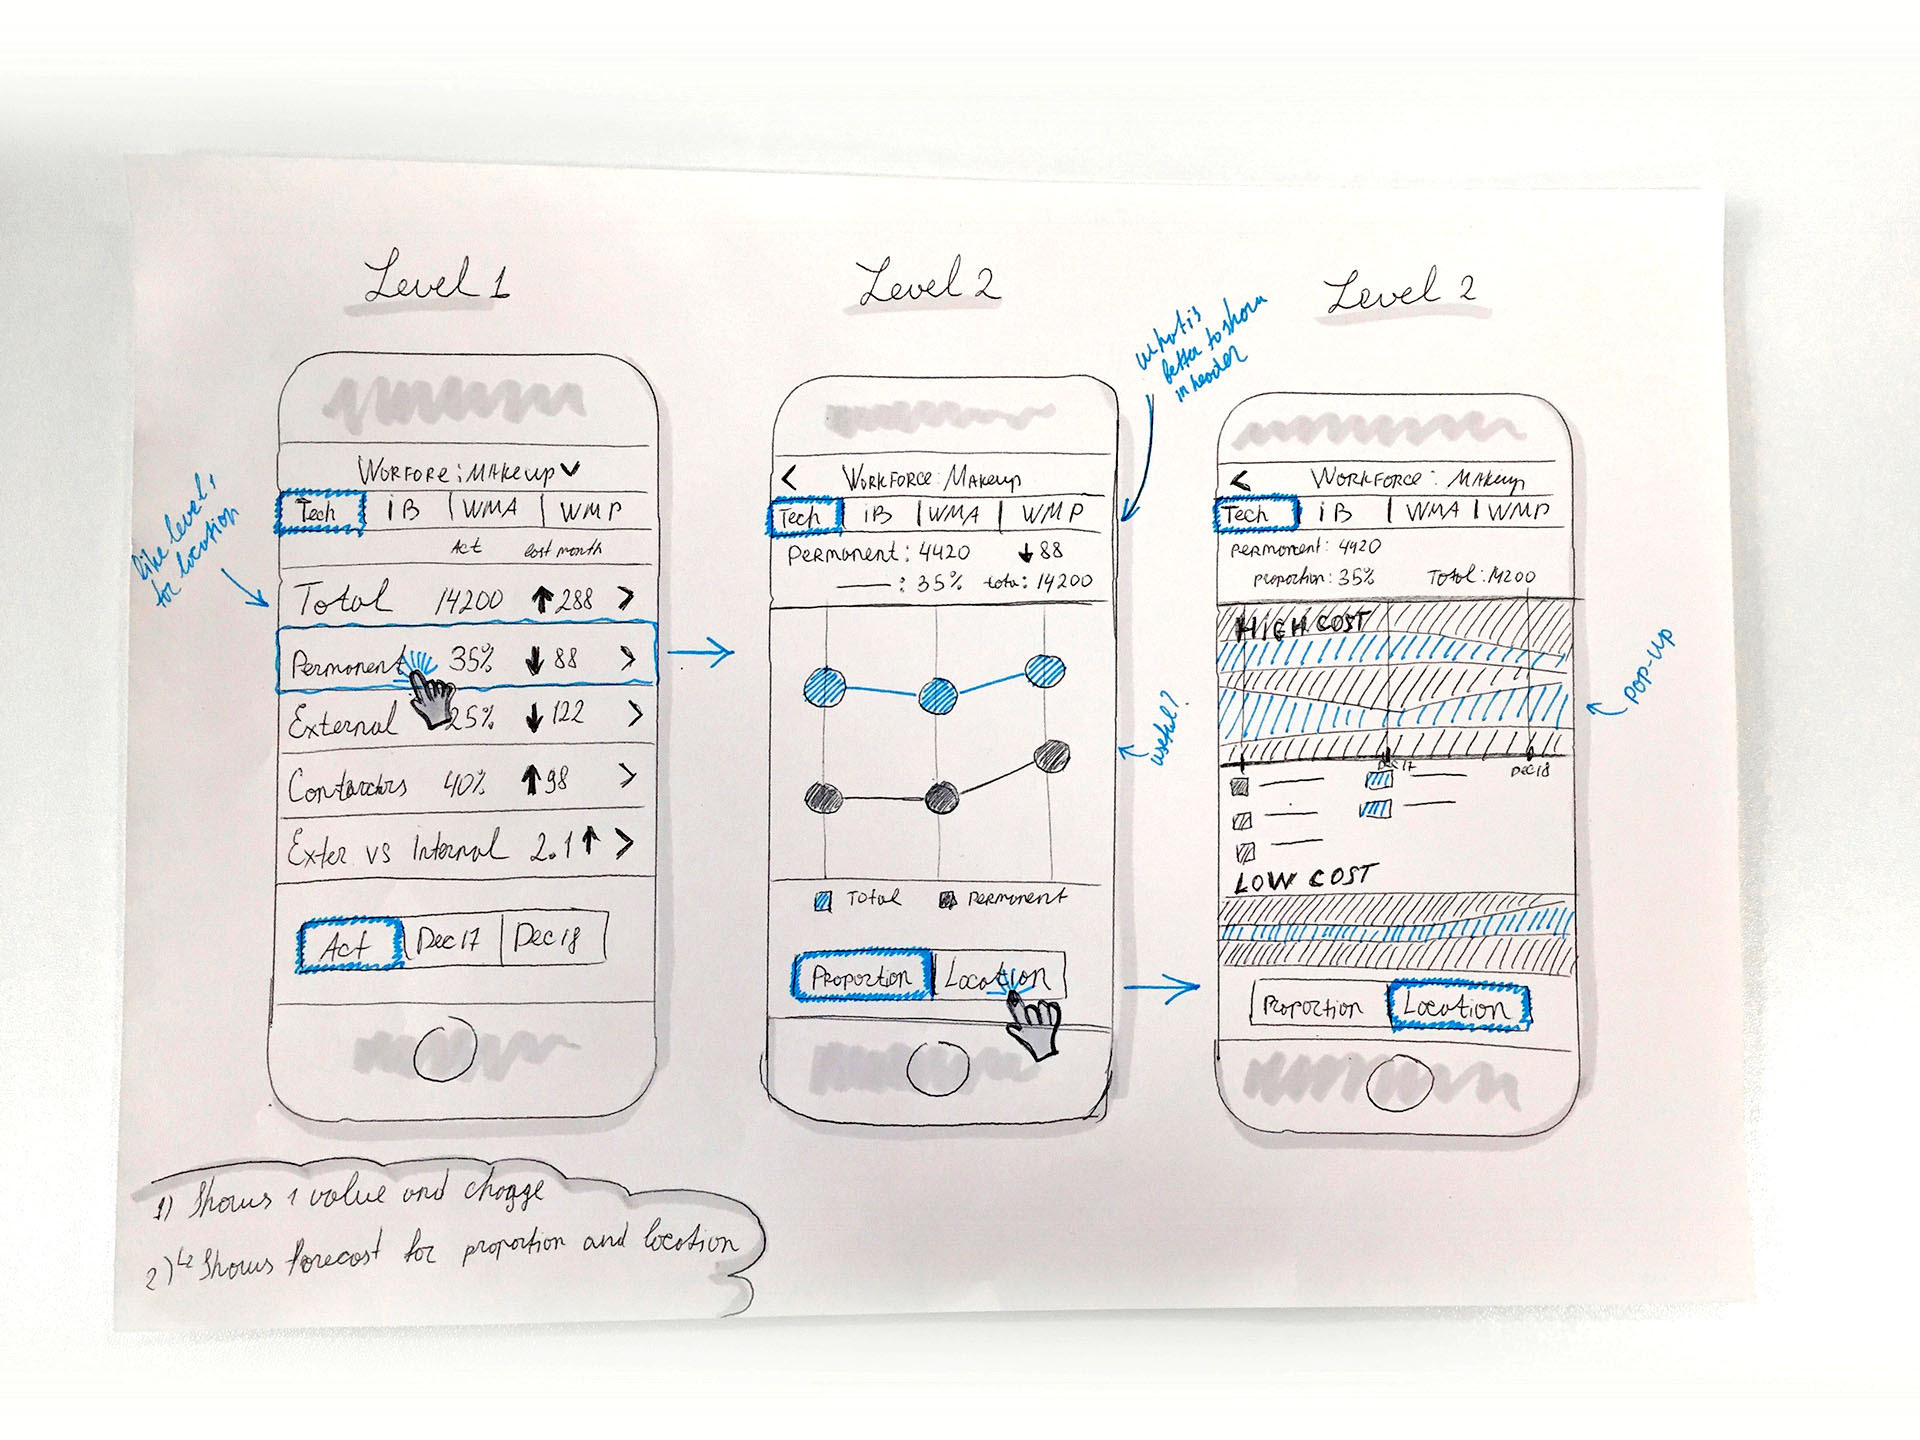 Level 1
Worfore: Makeup
Tech | iB | WMA | WMP
Act last month
Total 14200 ↑288 >
Permanent 35% ↓88 >
External 25% ↓122 >
Contarctors 40% ↑98 >
Exter vs Internal 2.1↑ >
Act | Dec17 | Dec18
like level 1
for location
Level 2
< Workforce: Makeup
Tech | iB | WMA | WMP
Permanent: 4420 ↓88
: 35% total: 14200
Total Permanent
Proportion | Location
what is
better to show
in header
useful?
Level 2
< Workforce: Makeup
Tech | iB | WMA | WMP
Permanent: 4420
proportion: 35% Total: 14200
HIGH COST
Dec 17 Dec18
LOW COST
Proportion | Location
POP-UP
1) Shows 1 value and change
2) L2 Shows forecast for proportion and location